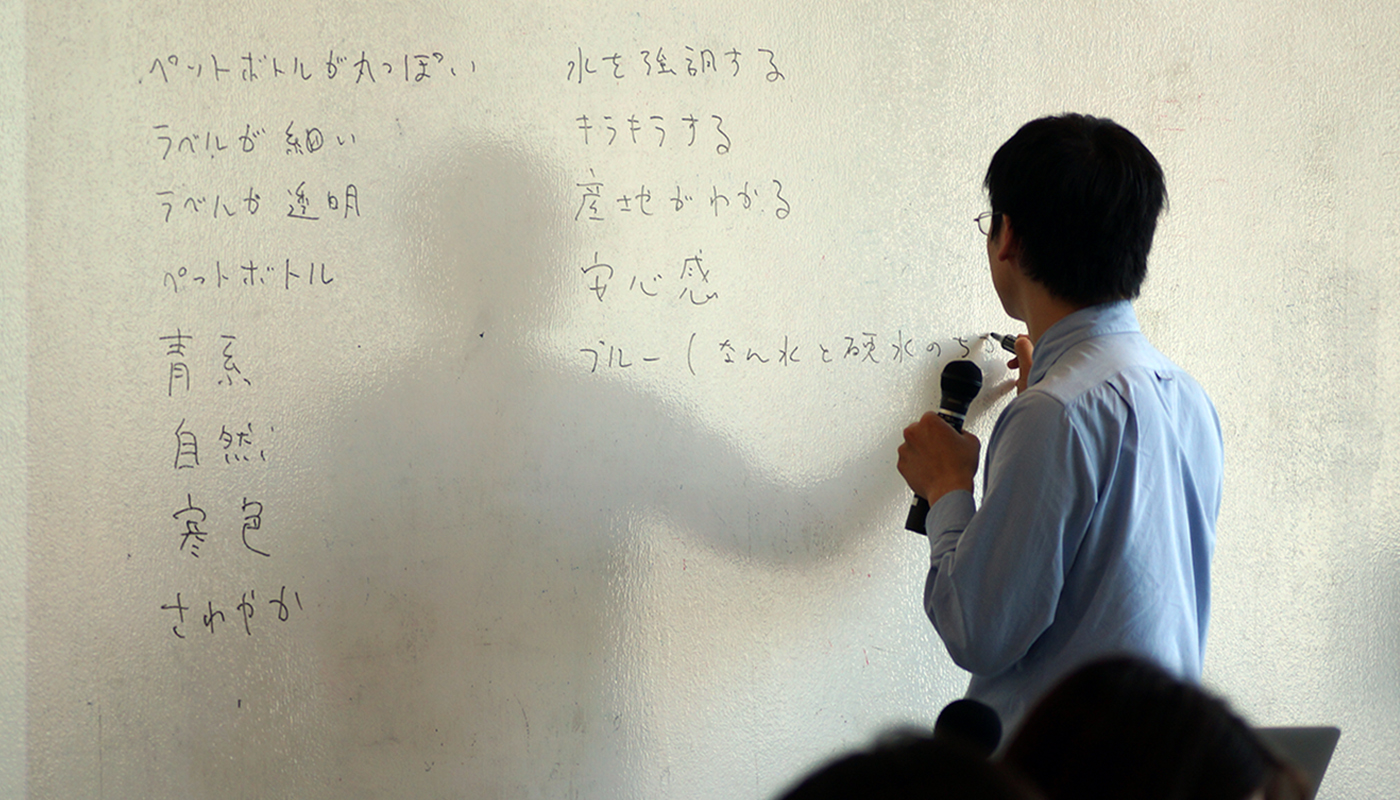 ペットボトルが丸っぽい
ラベルが細い
ラベルが透明
ペットボトル
青系
自然
寒色
さわやか
水を強調する
キラキラする
産地がわかる
安心感
ブルー(なん水と硬水のち